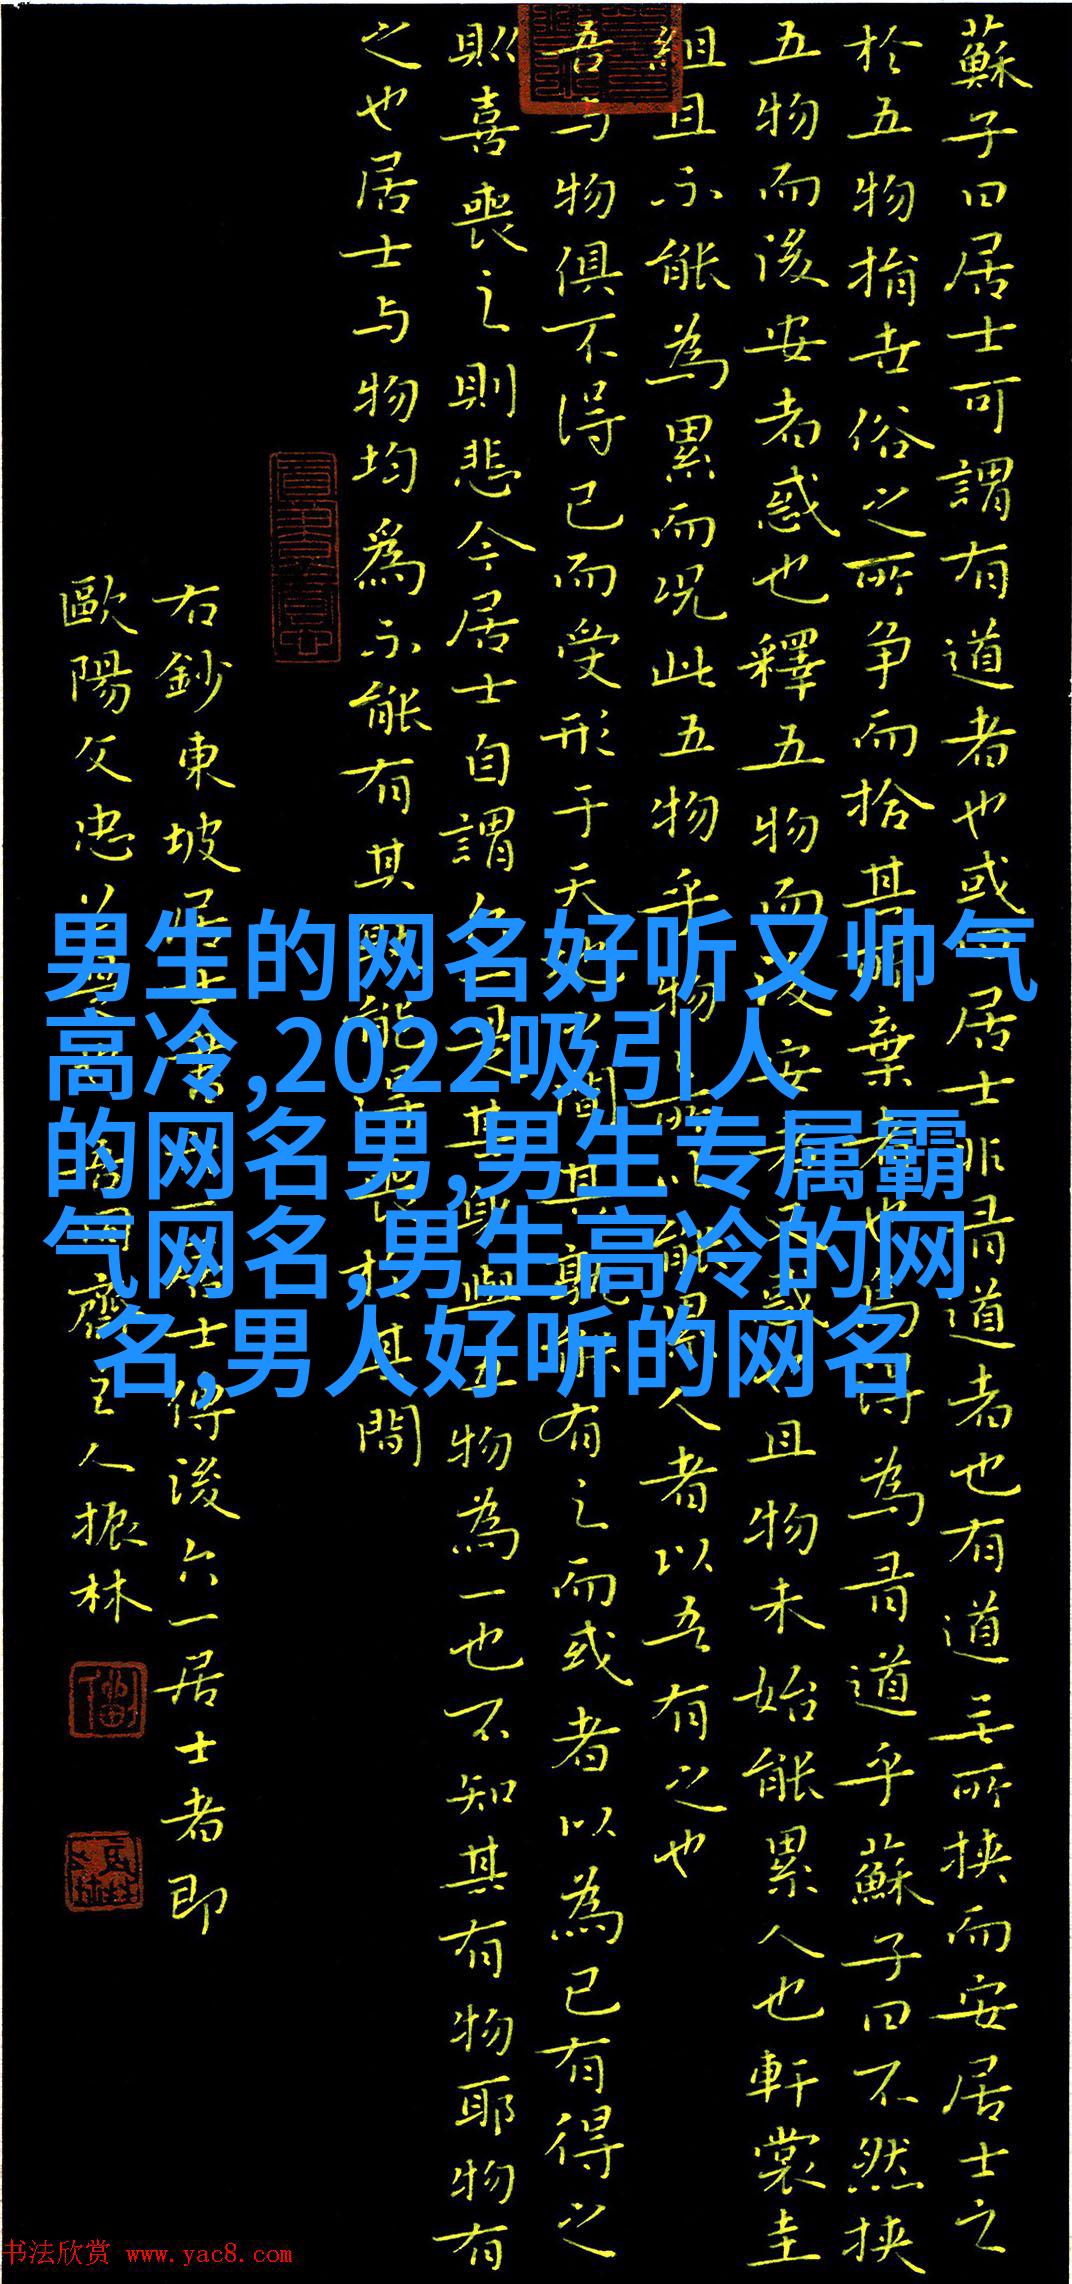 蘇子曰居士可謂有道者也或曰居士非有道者也有道無所挾而安居士之
於五物捐世俗之所争而拾其所棄者也烏得為有道乎蘇子曰不然挾
五物而後安者惑也釋五物而後安者又惑也且物未始能累人也軒裳圭
組且不能為累而況此五物乎物之所以能累人者以吾有之也
吾与物俱不得已而受形于天地之間其孰能有之而或者以為己有得之
則喜喪之則悲今居士自謂六一是其身與五物為一也不知其有物耶物有
之也居士与物均為不能有其孰能得喪於其間
右鈔東坡居士書六一居士傳後六一居士者即
歐陽文忠 齋主人振林
男生的网名好听又帅气
高冷,2022吸引人
的网名男,男生专属霸
气网名,男生高冷的网
名,男人好听的网名
书法欣赏 www.yac8.com